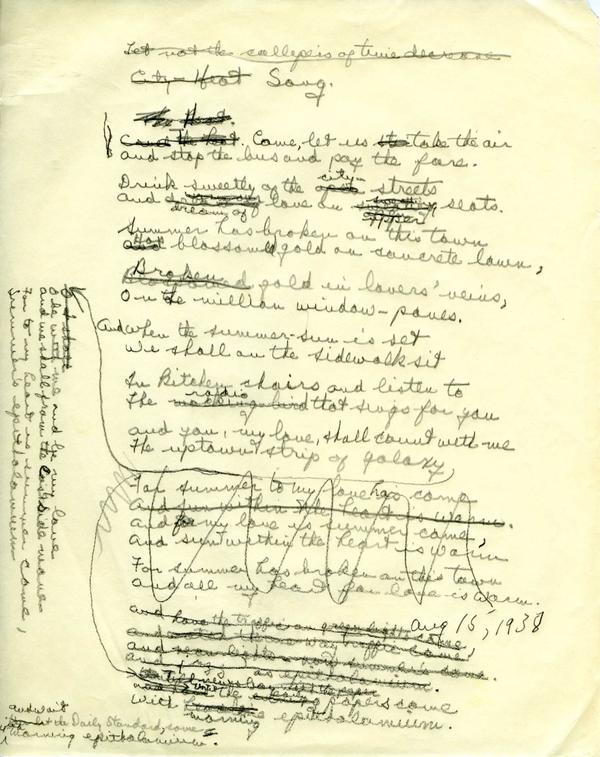 Let not the collapsis of time decrease
City-Heat Song.
The Heat.
Come, let us take the air
and stop the bus and pay the fare.
Drink sweetly of the city streets
and love on seats.
dreamy of
Summer has broken on this town
blossomed gold on concrete lawn,
Broken gold in lovers' veins,
On the million window-panes.
And when the summer-sun is set
We shall on the sidewalk sit
In kitchen chairs and listen to
radio
The mocking bird that sings for you
and you, my love, shall count with me
The uptown strip of galaxy,
For summer to my love has come
and sun within the heart is warm.
and for my love is summer come,
and sun within the heart is warm
For summer has broken on this town
and all my heart for love is warm.
Aug 15, 1938
and have the traffic on green lights come,
and as epithalamium.
the papers come
with morning epithalamium.
O be with me and be my love
and we shall from the
For to my heart is summer come,
Summer's epithalamium
and wait
let the Daily Standard, some
morning epithalamium.